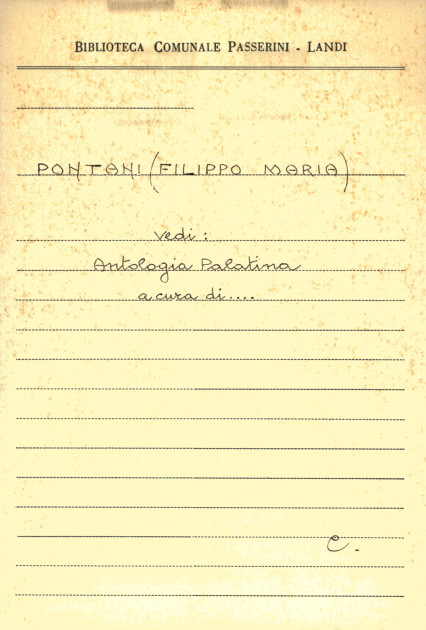 BIBLIOTECA COMUNALE PASSERINI - LANDI
PONTANI (FILIPPO MARIA)
vedi :
Antologia Palatina
a cura di....
C.